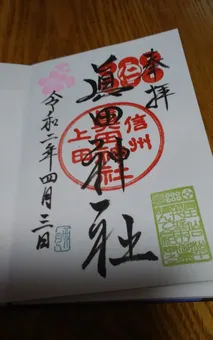 奉拝
眞田神社
信州
眞田神社
上田
令和二年四月三日